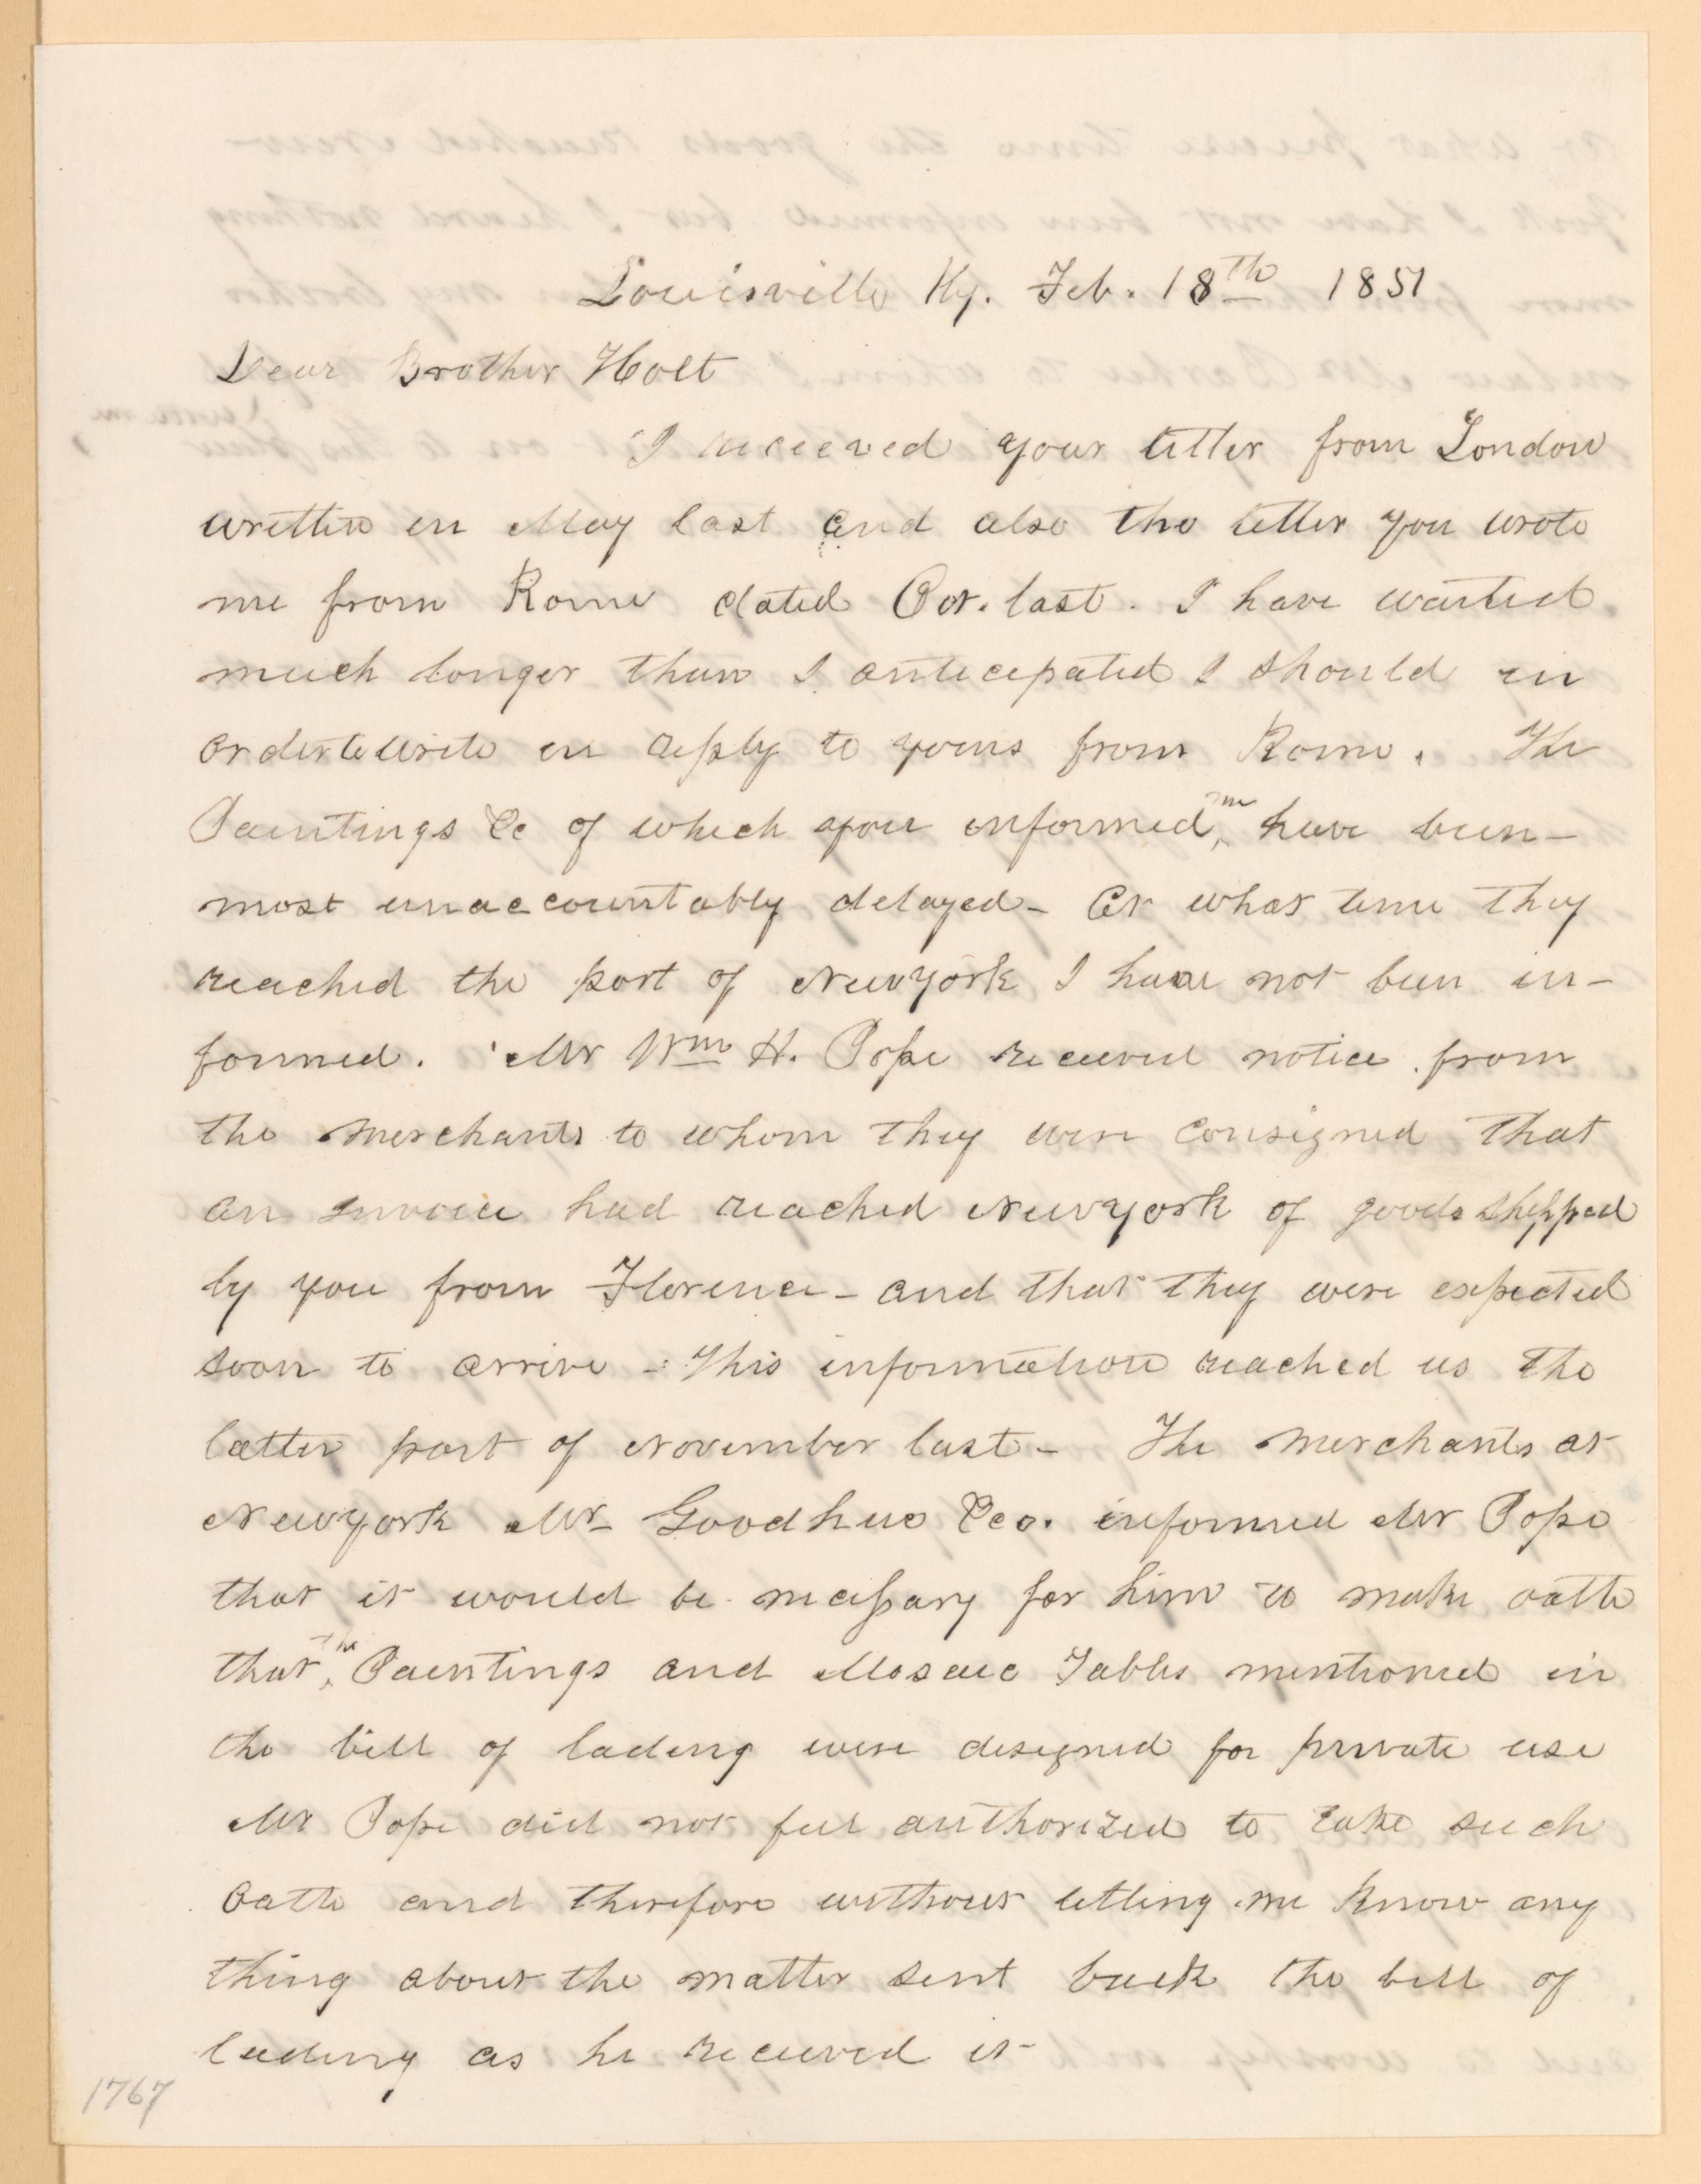 Louisville Ky. Feb. 18th 1851
Dear Brother Holt
I received your letter from London
written in May last and also the letter you wrote
me from Rome dated Oct. last. I have waited
much longer than I anticipated I should in
order to write in reply to yours from Rome. The
Paintings &c of which you informed me have been—
most unaccountably delayed— At what time they
reached the port of New York I have not been in-
formed. Mr Wm H. Pope received notice from
the Merchants to whom they were consigned that
an invoice had reached New York of goods shipped
by you from Florence— and that they were expected
soon to arrive — This information reached us the
latter part of November last— The Merchants at
New York Mr— Goodhue &Co. informed Mr Pope
that it would be necessary for him to make oath
that the Paintings and Mosaic Tables mentioned in
the bill of lading were designed for private use
Mr Pope did not feel authorized to take such
oath and therefore without letting me know any
thing about the matter sent back the bill of
lading as he received it—
1767